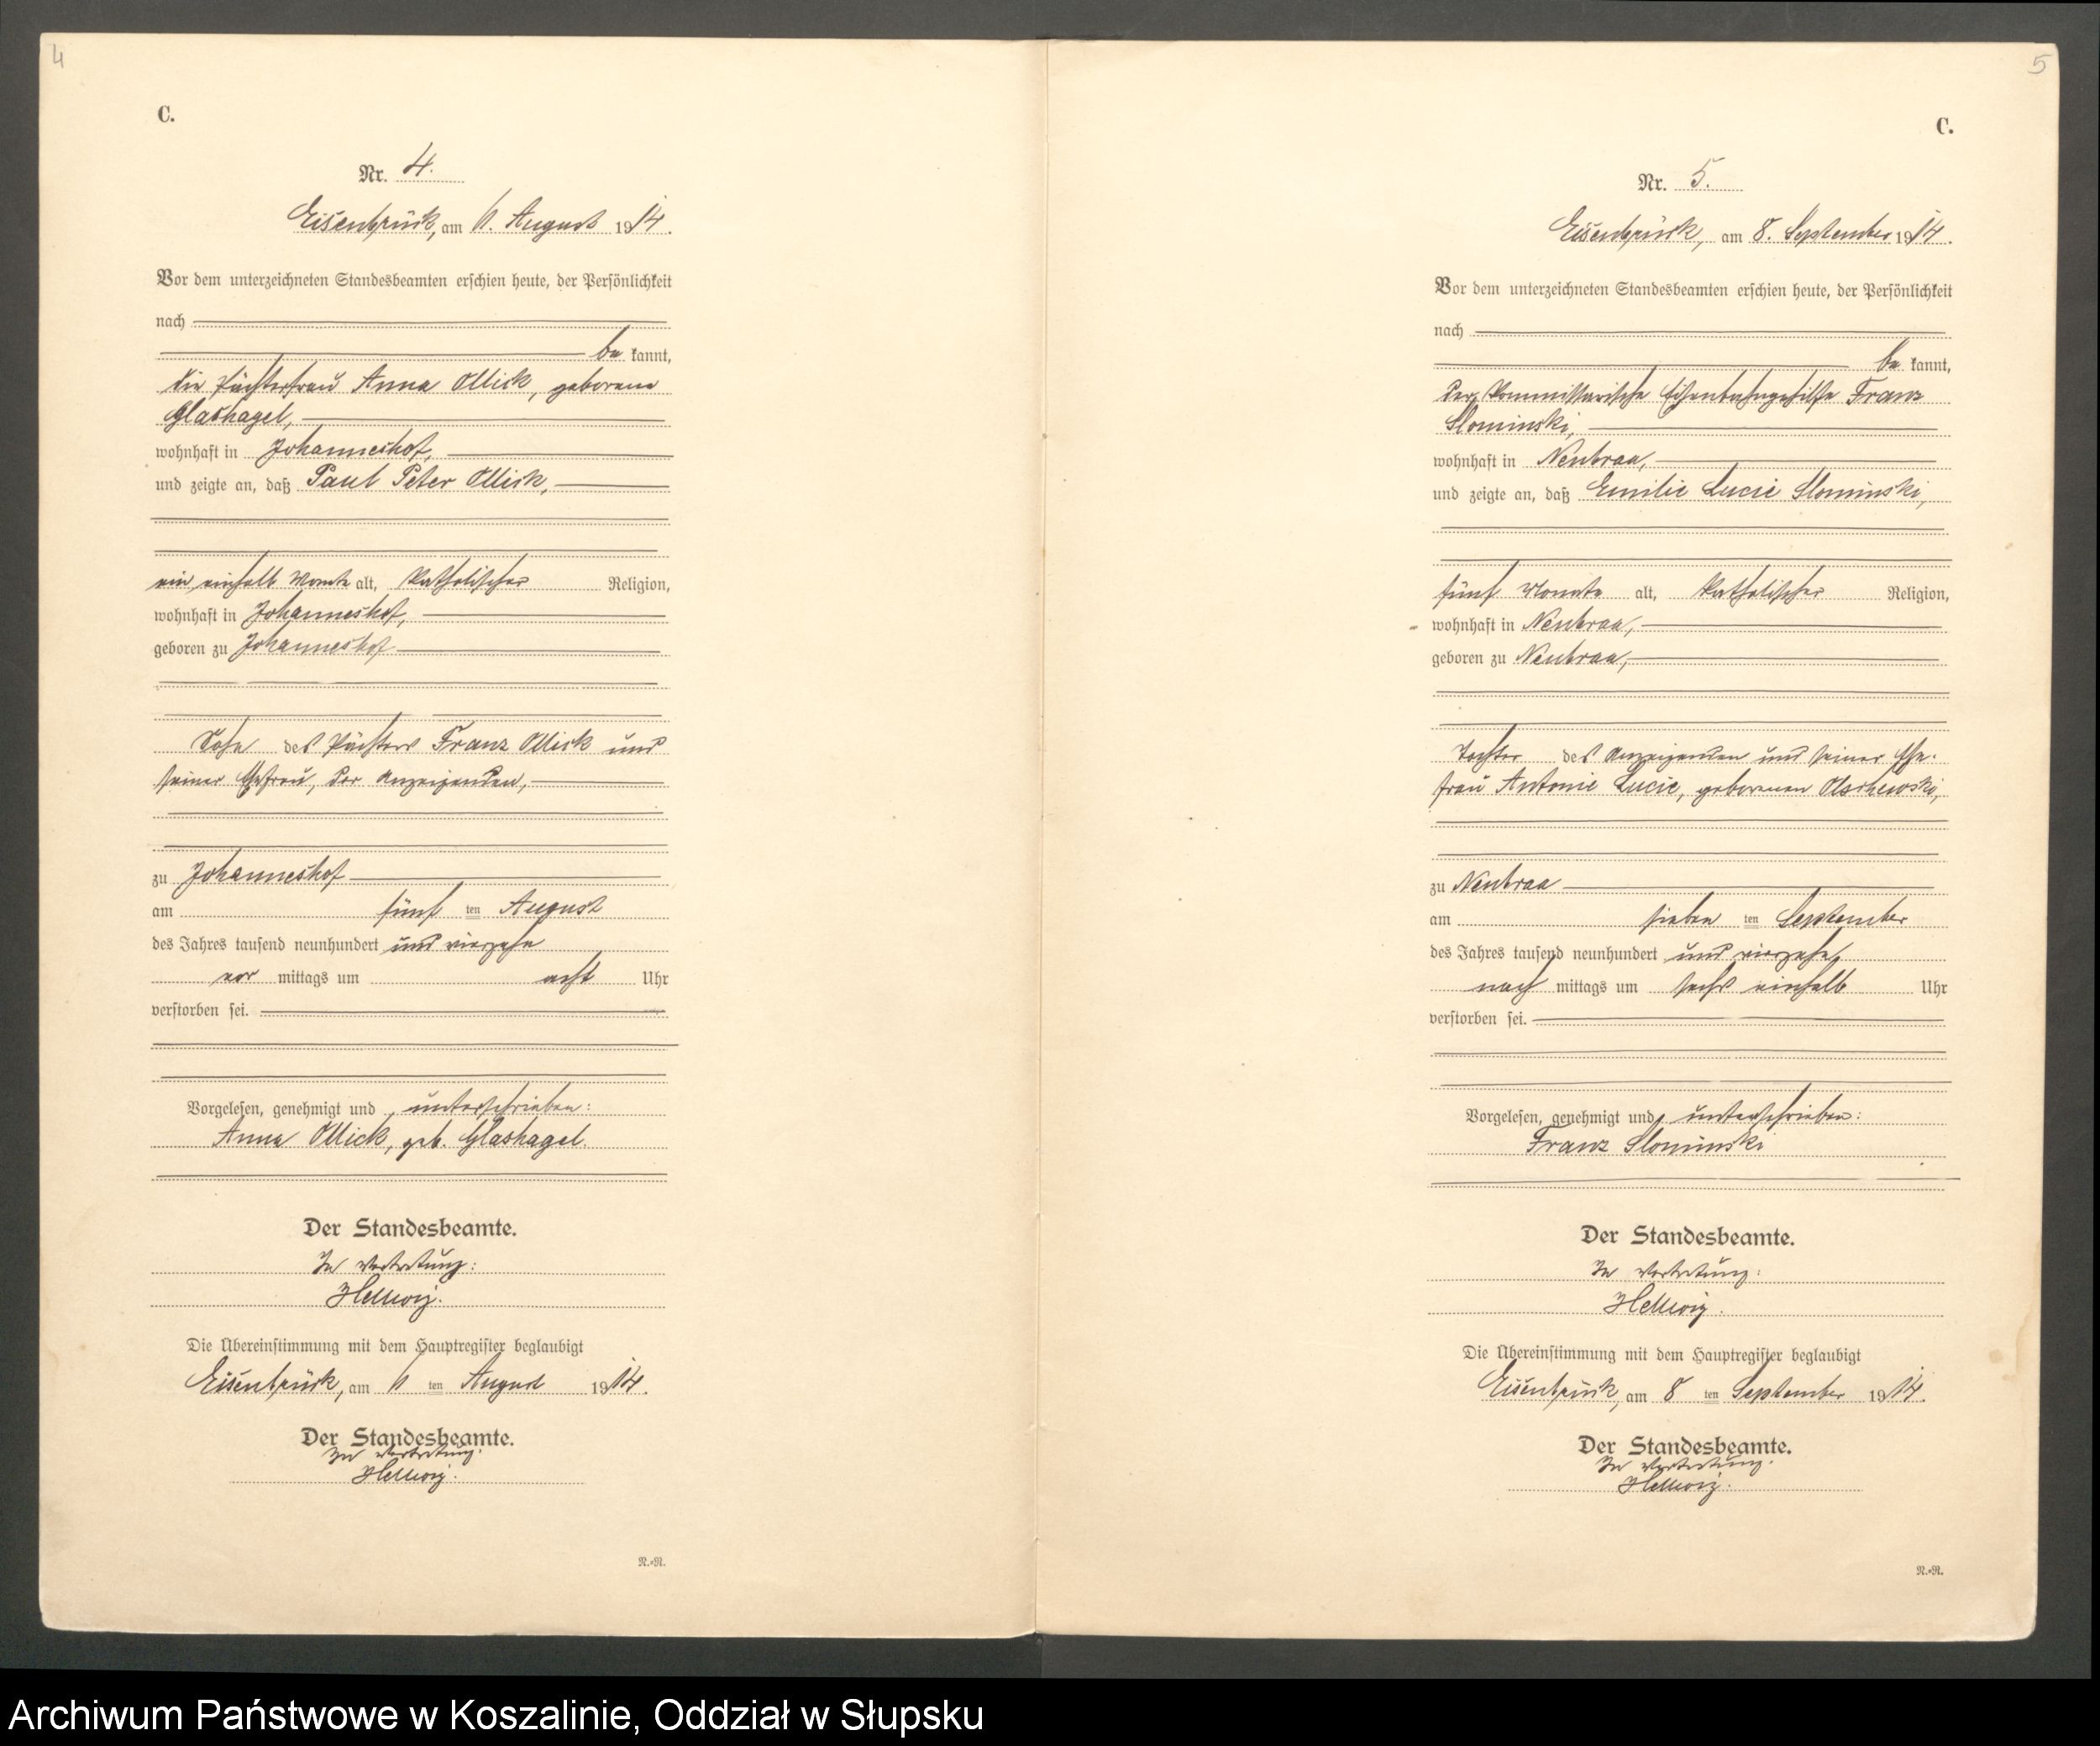 4
C.
Nr. 4.
Eisenbrück, am 6. August 1914.
Vor dem unterzeichneten Standesbeamten erschien heute, der Persönlichkeit
nach
be kannt,
die Pächterfrau Anna Ollick, geborene
Glashagel,
wohnhaft in Johanneshof,
und zeigte an, daß Paul Peter Ollick,
ein einhalb Monate alt, katholischer Religion,
wohnhaft in Johanneshof,
geboren zu Johanneshof
Sohn des Pächters Franz Ollick und
seiner Ehefrau, der Anzeigenden,
zu Johanneshof
am fünf ten August
des Jahres tausend neunhundert und vierzehn
vor mittags um acht Uhr
verstorben sei.
Vorgelesen, genehmigt und unterschrieben:
Anna Ollick, geb. Glashagel.
Der Standesbeamte.
In Vertretung:
Hellwig.
Die Übereinstimmung mit dem Hauptregister beglaubigt
Eisenbrück, am 6 ten August 1914.
Der Standesbeamte.
In Vertretung:
Hellwig.
R.-R.
5
C.
Nr. 5.
Eisenbrück, am 8. September 1914.
Vor dem unterzeichneten Standesbeamten erschien heute, der Persönlichkeit
nach
be kannt,
der kommissarische Eisenbahngehilfe Franz
Slominski,
wohnhaft in Neubraa,
und zeigte an, daß Emilie Lucie Slominski,
fünf Monate alt, katholischer Religion,
wohnhaft in Neubraa,
geboren zu Neubraa,
Tochter des Anzeigenden und seiner Ehe-
frau Antonie Lucie, geborenen Olschewski,
zu Neubraa
am sieben ten September
des Jahres tausend neunhundert und vierzehn
nach mittags um sechs einhalb Uhr
verstorben sei.
Vorgelesen, genehmigt und unterschrieben:
Franz Slominski
Der Standesbeamte.
In Vertretung:
Hellwig.
Die Übereinstimmung mit dem Hauptregister beglaubigt
Eisenbrück, am 8 ten September 1914.
Der Standesbeamte.
In Vertretung:
Hellwig.
R.-R.
Archiwum Państwowe w Koszalinie, Oddział w Słupsku